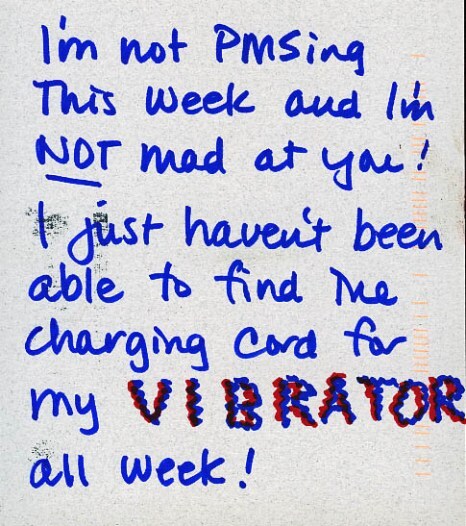 I'm not PMSing
This week and I'm
NOT mad at you!
I just haven't been
able to find the
charging cord for
my VIBRATOR
all week!